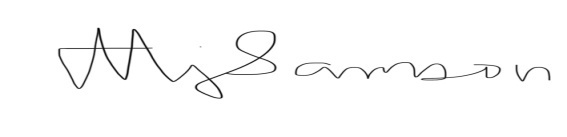 Mj Samson